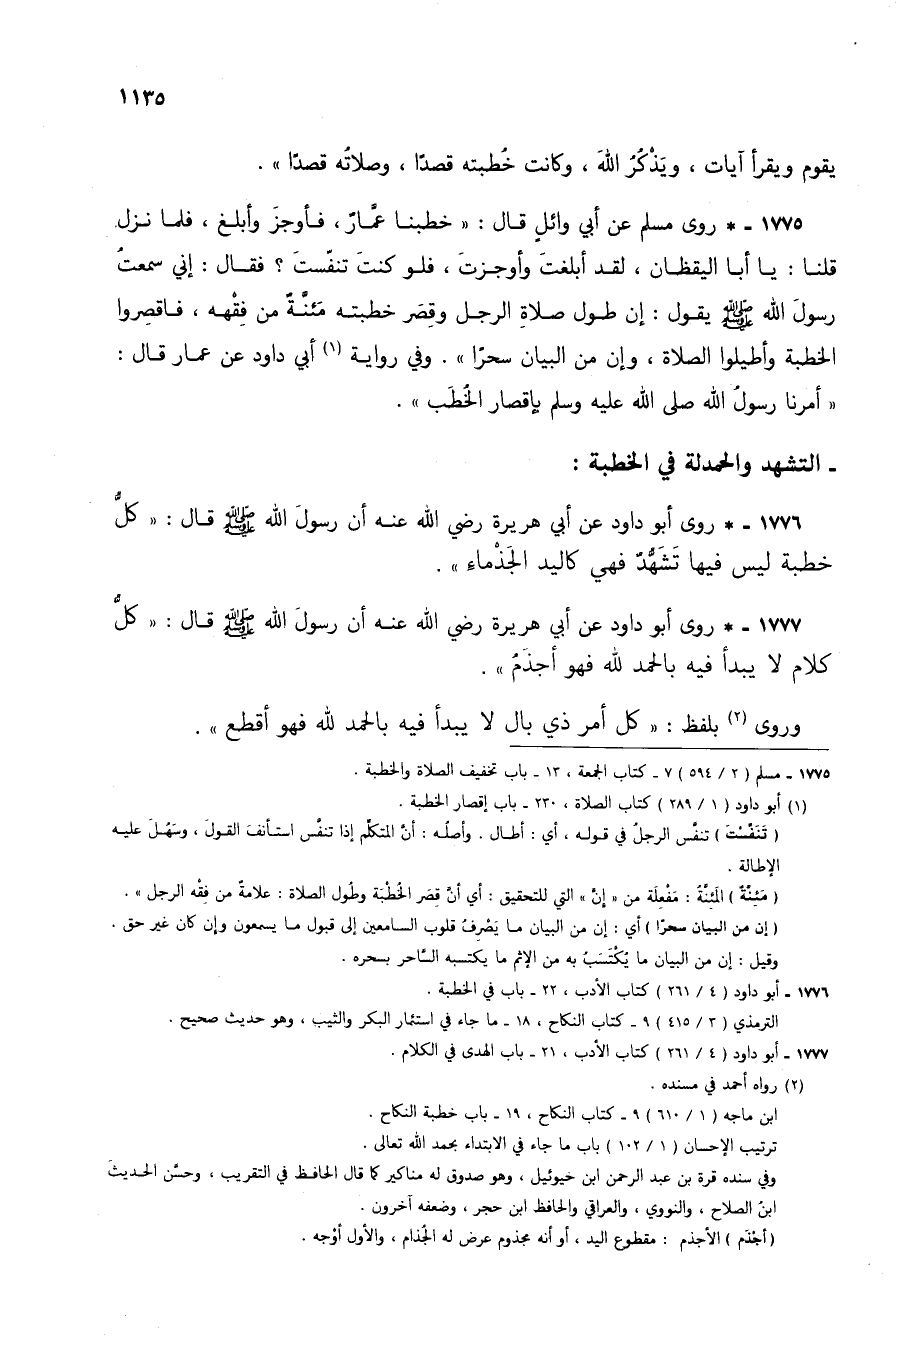 ١١٣٥
يقوم ويقرأ آيات ، ويَذْكُرُ اللهَ ، وكانت خُطبته قصدًا ، وصلاتُه قصدًا » .
١٧٧٥ ـ * روى مسلم عن أبي وائلٍ قال : « خطبنا عَمَّارٌ ، فأوجزَ وأبلغ ، فلما نزل
قلنا : يا أبا اليقظان ، لقد أبلغتَ وأوجزتَ ، فلو كنتَ تنفّستَ ؟ فقال : إني سمعتُ
رسولَ الله ﷺ يقول : إن طول صلاةِ الرجل وقِصَر خطبته مَئنَّةٌ من فِقْهه ، فاقصِروا
الخطبة وأطيلوا الصلاة ، وإن من البيان سحرًا » . وفي رواية (١) أبي داود عن عمار قال :
« أمرنا رسولُ الله صلى الله عليه وسلم بإقصار الخُطَب » .
ـ التشهد والحمدلة في الخطبة :
١٧٧٦ ـ * روى أبو داود عن أبي هريرة رضي الله عنه أن رسولَ الله ﷺ قال : « كلُّ
خطبة ليس فيها تَشَهُّدٌ فهي كاليد الجَذْماء » .
١٧٧٧ ـ * روى أبو داود عن أبي هريرة رضي الله عنه أن رسولَ الله ﷺ قال : « كلُّ
كلام لا يبدأ فيه بالحمد لله فهو أجذَمُ » .
وروى (٢) بلفظ : « كل أمر ذي بال لا يبدأ فيه بالحمد لله فهو أقطع » .
١٧٧٥ ـ مسلم ( ٢ / ٥٩٤ ) ٧ ـ كتاب الجمعة ، ١٣ ـ باب تخفيف الصلاة والخطبة .
(١) أبو داود ( ١ / ٢٨٩ ) كتاب الصلاة ، ٢٣٠ ـ باب إقصار الخطبة .
( تَنَفَّسْتَ ) تنفَّس الرجلُ في قوله ، أي : أطال . وأصلُه : أنَّ المتكلِّم إذا تنفَّس استأنف القولَ ، وسَهُلَ عليه
الإطالة .
( مَئِنَّةٌ ) المَئِنَّةُ : مَفْعِلَة من « إنَّ » التي للتحقيق : أي أنَّ قِصَر الخُطْبَة وطُول الصلاة : علامةٌ من فِقْه الرجل » .
( إن من البيان سحرًا ) أي : إن من البيان ما يَصْرِفُ قلوب السامعين إلى قبول ما يسمعون وإن كان غير حق .
وقيل : إن من البيان ما يُكْتَسَبُ به من الإثم ما يكتسبه السَّاحر بسحره .
١٧٧٦ ـ أبو داود ( ٤ / ٢٦١ ) كتاب الأدب ، ٢٢ ـ باب في الخطبة .
الترمذي ( ٣ / ٤١٥ ) ٩ ـ كتاب النكاح ، ١٨ ـ ما جاء في استئمار البكر والثيب ، وهو حديث صحيح .
١٧٧٧ ـ أبو داود ( ٤ / ٢٦١ ) كتاب الأدب ، ٢١ ـ باب الهدى في الكلام .
(٢) رواه أحمد في مسنده .
ابن ماجه ( ١ / ٦١٠ ) ٩ ـ كتاب النكاح ، ١٩ ـ باب خطبة النكاح .
ترتيب الإحسان ( ١ / ١٠٢ ) باب ما جاء في الابتداء بحمد الله تعالى .
وفي سنده قرة بن عبد الرحمن ابن خيوئيل ، وهو صدوق له مناكير كما قال الحافظ في التقريب ، وحسَّن الحديثَ
ابنُ الصلاح ، والنووي ، والعراقي والحافظ ابن حجر ، وضعفه آخرون .
( أجْذَم ) الأجذم : مقطوع اليد ، أو أنه مجذوم عرض له الجُذام ، والأول أوْجه .